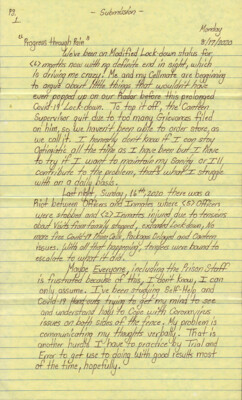 P.
1
- Submission -
Monday
8/17/2020
"Progress through Pain"
We've been on Modified Lock-down status for
(6) months now with no definite end in sight, which
is driving me crazy! Me and my Cellmate are beginning
to argue about little things that wouldn't have
ever popped up on our Radar before this prolonged
Covid 19 Lock-down. To top it off, the Canteen
Supervisor quit due to too many Grievances filed
on him, so we haven't been able to order store, as
we call it. I honestly don't know if I can stay
Optimistic all the time as I have been but I have
to try if I want to maintain my Sanity or I'll
contribute to the problem, that's what I struggle
with on a daily basis.
Last night, Sunday, 16th, 2020 there was a
Riot between Officers and Inmates where (5) Officers
were stabbed and (2) Inmates injured due to tensions
about Yards being extended Lock-down, No
Package Delays and Canteen
issues. With all that happening, tempers were bound to
escalate to what it did.
Maybe Everyone, including the Prison Staff
is frustrated because of this, I don't know, I can
only assume. I've been studying Self-Help and
Covid-19 trying to get my mind to see
and understand how to Cope with Coronavirus
issues on both sides of the fence. My problem is
communicating my thoughts verbally. That is
another hurdle I have to practice by Trial and
Error to get use to doing with good results most
of the time, hopefully.